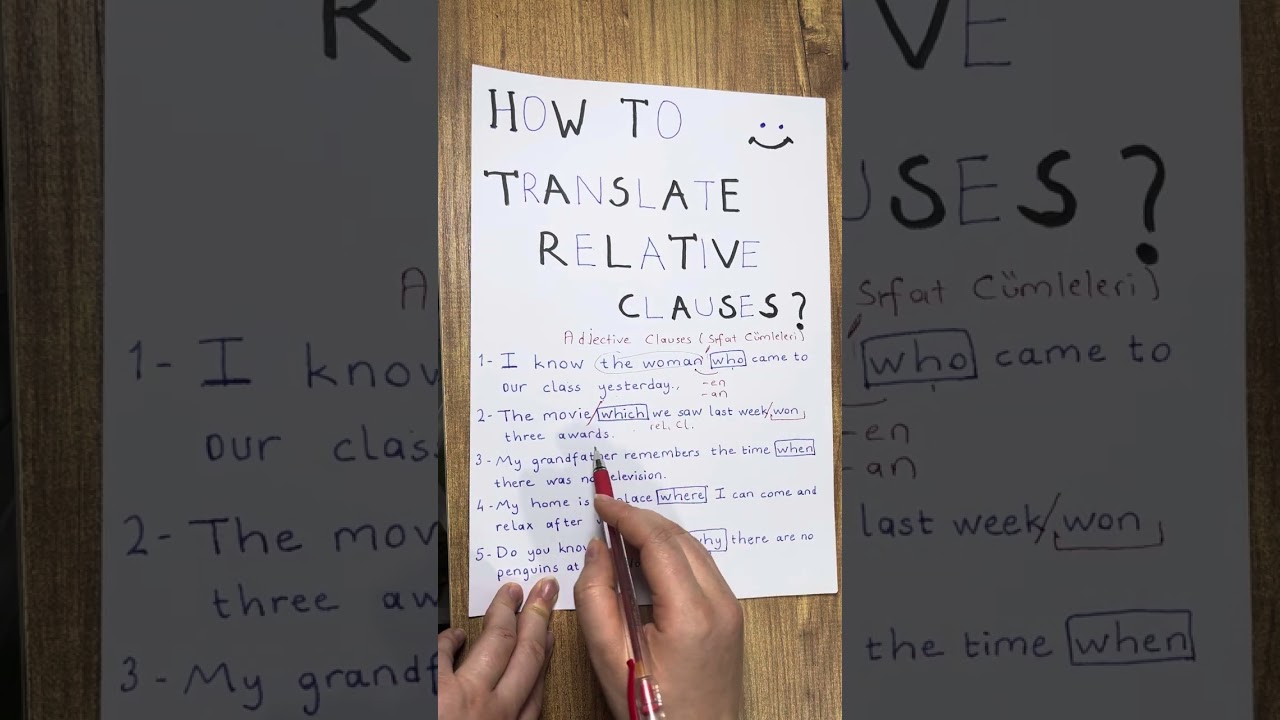 HOW TO
TRANSLATE
RELATIVE
CLAUSES?
Adjective Clauses (Sıfat Cümleleri)
1- I know the woman who came to
our class yesterday.
-en
-an
2- The movie which we saw last week won
rel. Cl.
three awards.
3- My grandfather remembers the time when
there was no television.
4- My home is place where I can come and
relax after
5- Do you know why there are no
penguins at